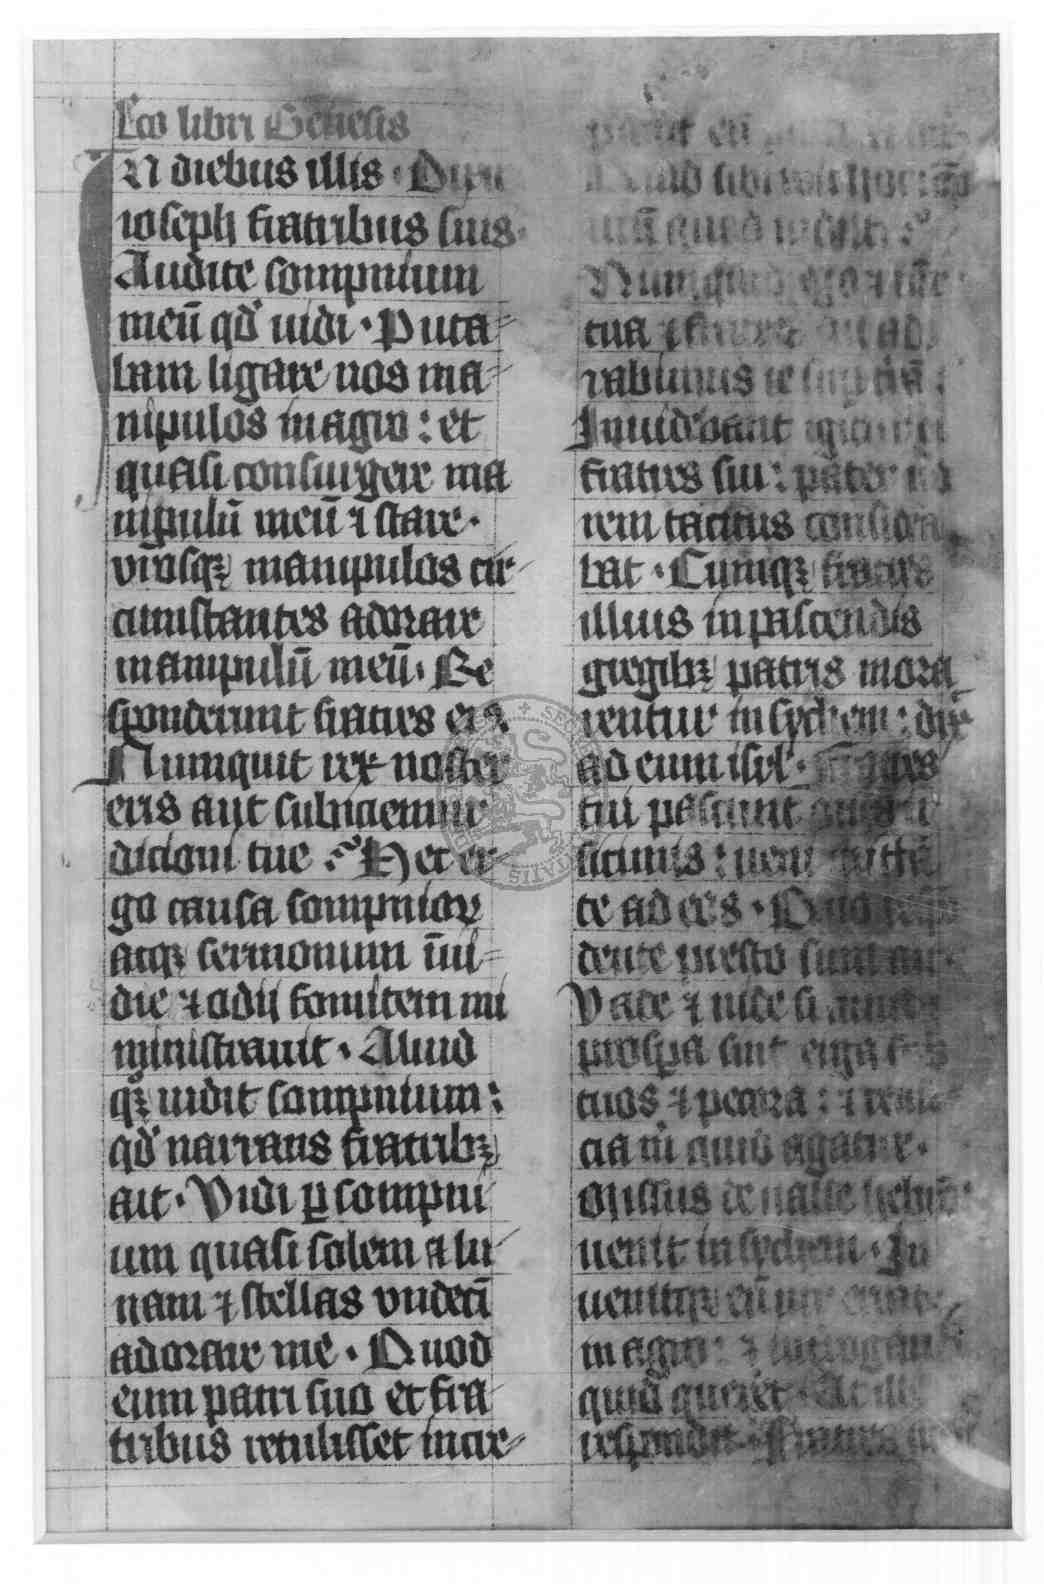 Lco libri Genesis
IN diebus illis · Dixit
ioseph fratribus suis ·
Audite sompnium
meū qđ uidi · Puta-
bam ligare nos ma-
nipulos in agro : et
quasi consurgere ma
nipulū meū ⁊ stare ·
vr̄osqꝫ manipulos cir-
cumstantes adorare
manipulū meū · Re
sponderunt fratres eis
Numquit rex noster
eris aut subiciemur
dicioni tue ? Hec er-
go causa sompnioꝝ
atqꝫ sermonum īui-
die ⁊ odij fomitem mi
ministrauit · Aliud
qꝫ uidit sompnium :
qđ narrans fratribꝫ
ait · Vidi ꝑ sompni
um quasi solem a lu-
nam ⁊ stellas vndecī
adorare me · Quod
cum patri suo et fra-
tribus retulisset incre-
pauit eū
Quid sibi uult hoc
quod uidisti ?
Numquid ego ⁊
tua ⁊ fratres ad
rabimus te suꝑ :
Inuidebant igitur ei
fratres sui : pater
rem tacitus considera
bat · Cumqꝫ fratres
illius in pascendis
gregibꝫ patris mora
rentur in sychem : dix̄
ad eum isrl̄ · fratres
tui pascunt oues
sicimis : ueni mittā
te ad eos · Quo
dente presto sum
Vade ⁊ uide si cuncta
prosꝑa sint erga
tuos ⁊ pecora : ⁊ renū
cia m̄ quid agatur ·
Missus de ualle hebrō
uenit in sychem · In
uenitqꝫ eū
in agro : ⁊ interrogauit
quid quereret · At ille
respondit · Fratres